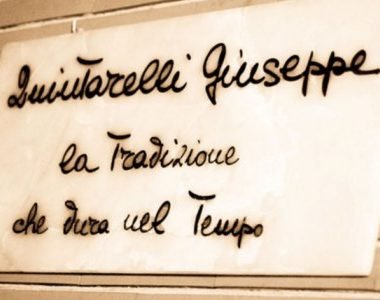 Quintarelli Giuseppe
la Tradizione
che dura nel Tempo